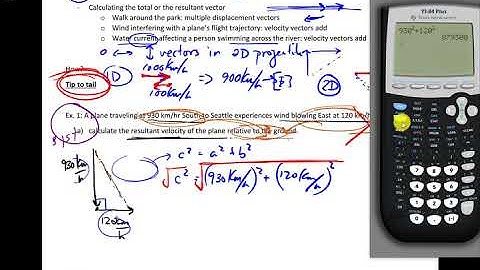 Calculating the total or the resultant vector
o Walk around the park: multiple displacement vectors
o Wind interfering with a plane's flight trajectory: velocity vectors add
o Water current affecting a person swimming across the river: velocity vectors add
vectors in 2D
1000 Km/h
1D
=> 900 Km/h [E]
100 Km/h
2D
Tip to tail
Ex. 1: A plane traveling at 930 km/hr South to Seattle experiences wind blowing East at 120 km/h
a) calculate the resultant velocity of the plane relative to the ground
c² = a² + b²
√c² = √(930 Km/h)² + (120 Km/h)²
930 Km/h
120 Km/h
TI-84 Plus
Texas Instruments
930²+120²
879300